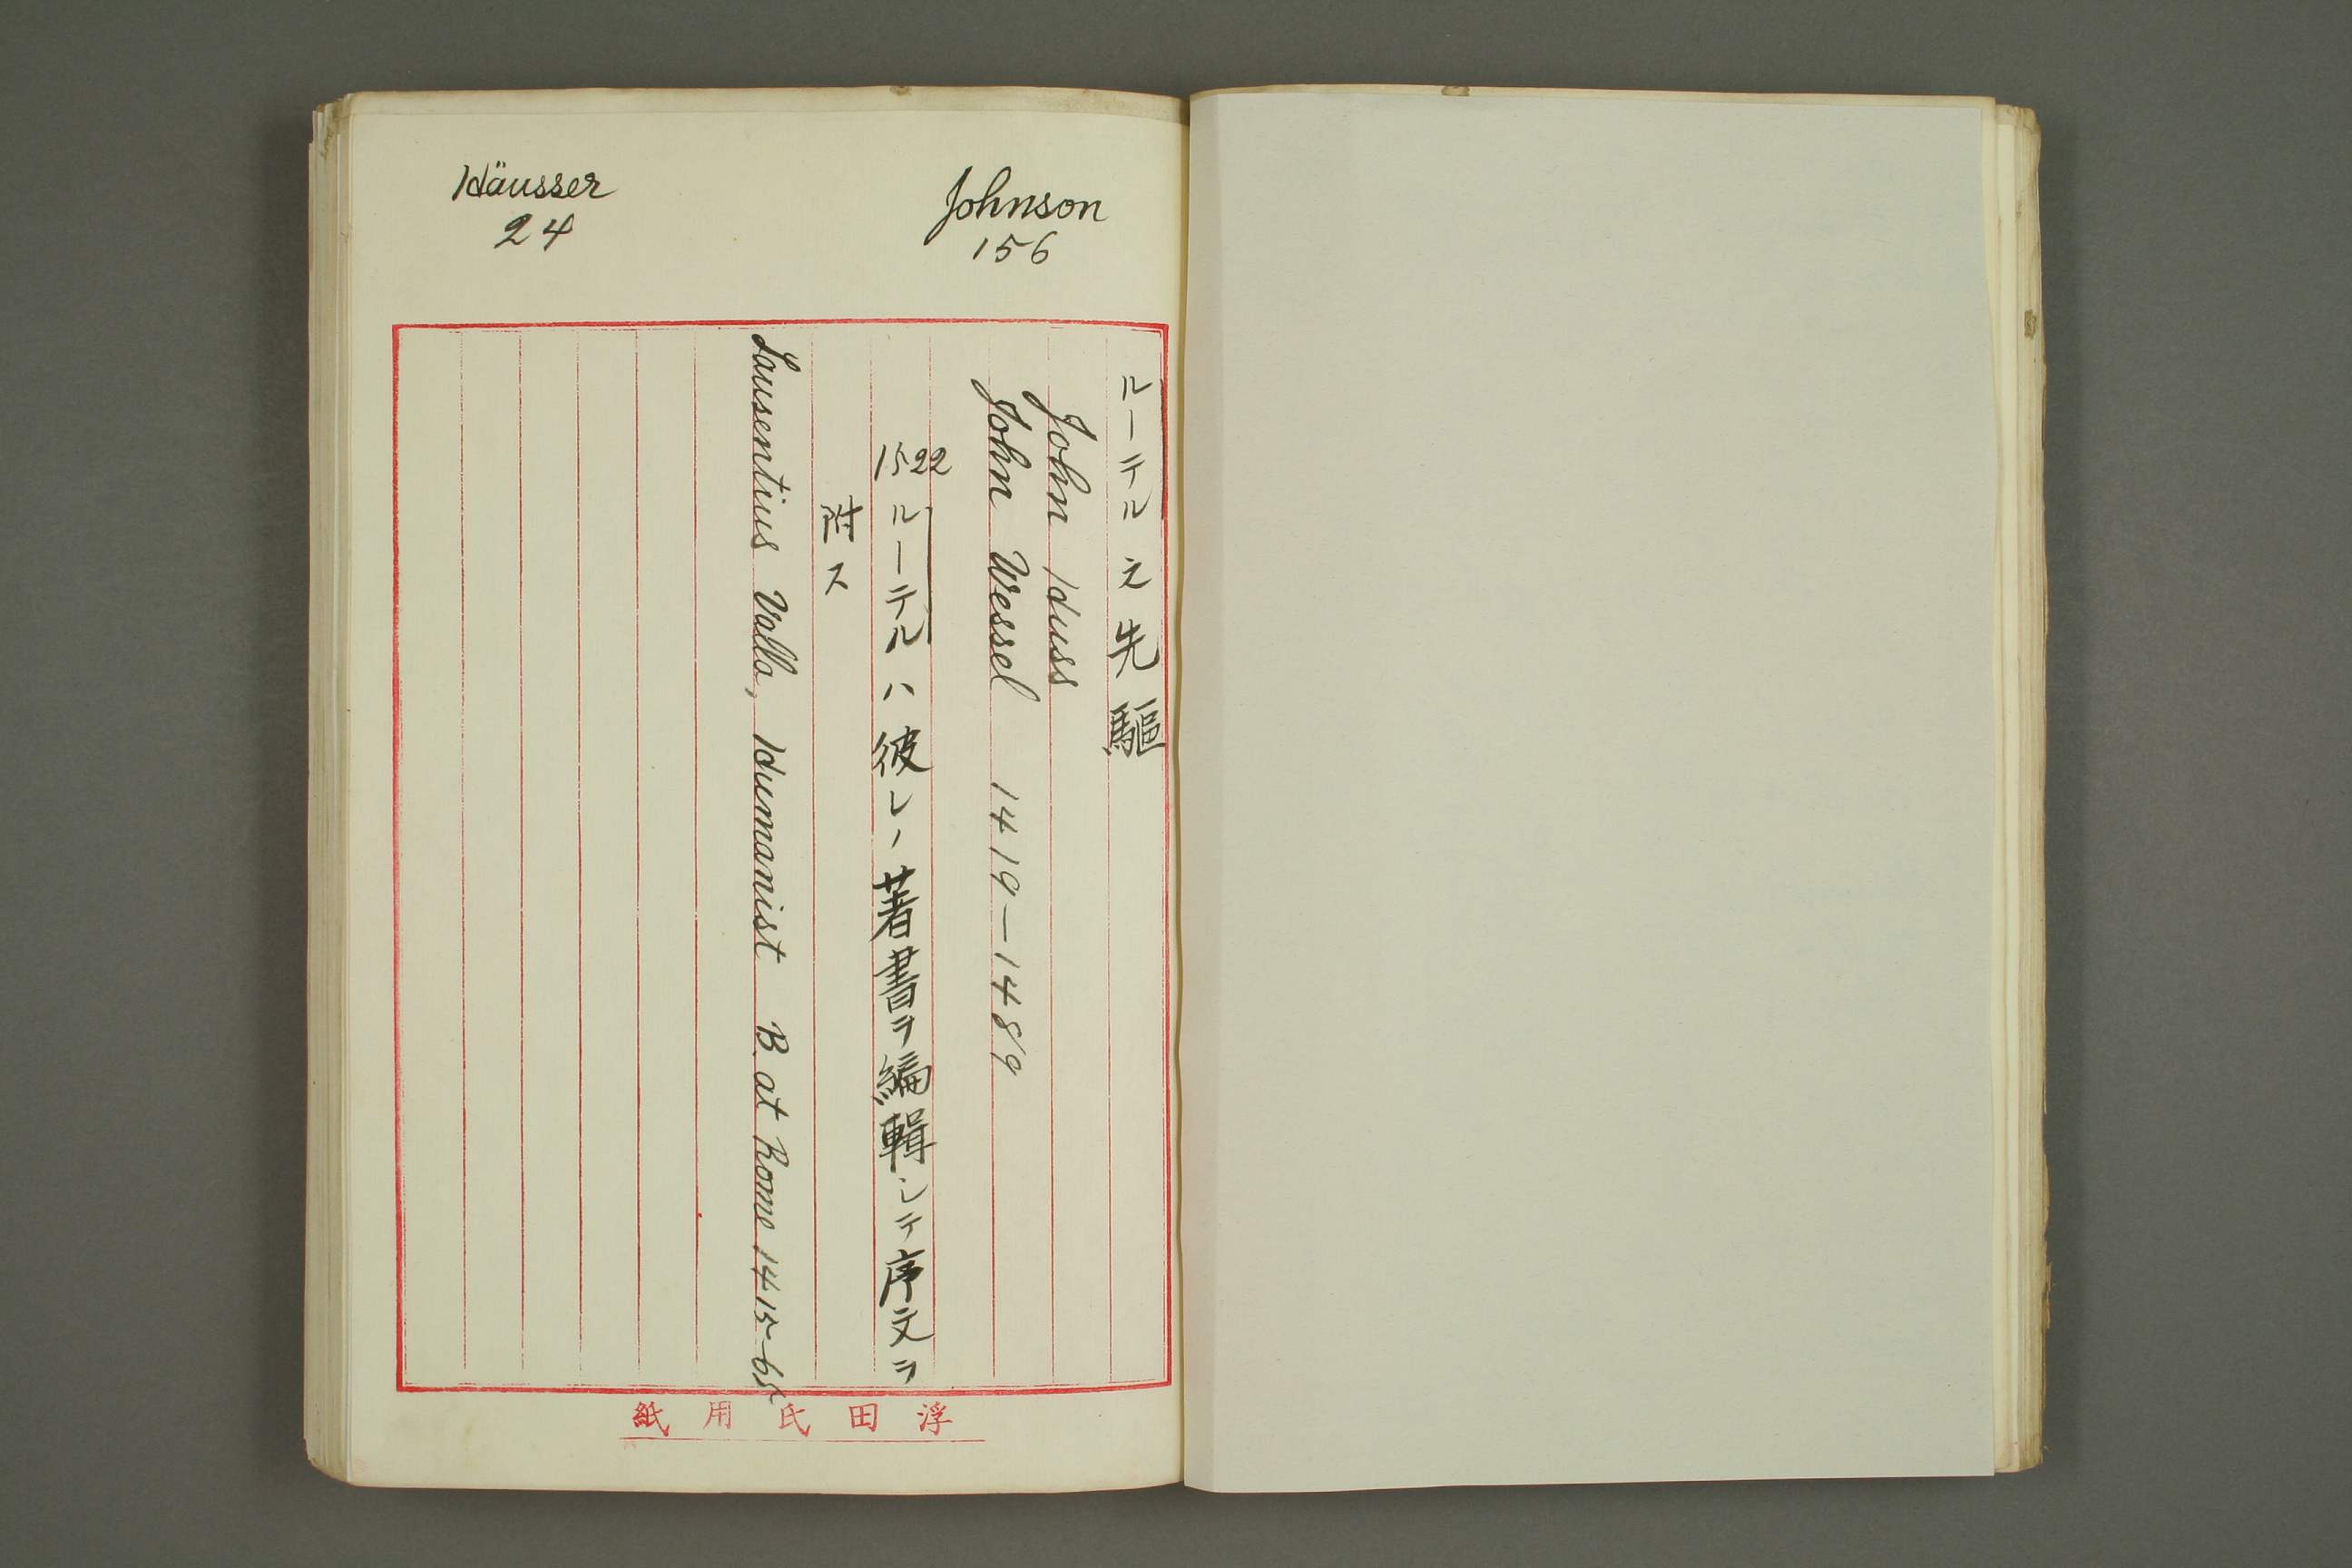 Johnson
156
Häusser
24
ルーテル之先驅
John Huss
John Wessel 1419—1489
1522 ルーテルハ彼レノ著書ヲ編輯シテ序文ヲ
附ス
Lausentius Valla, Humanist B. at Rome 1415-65
浮田氏用紙